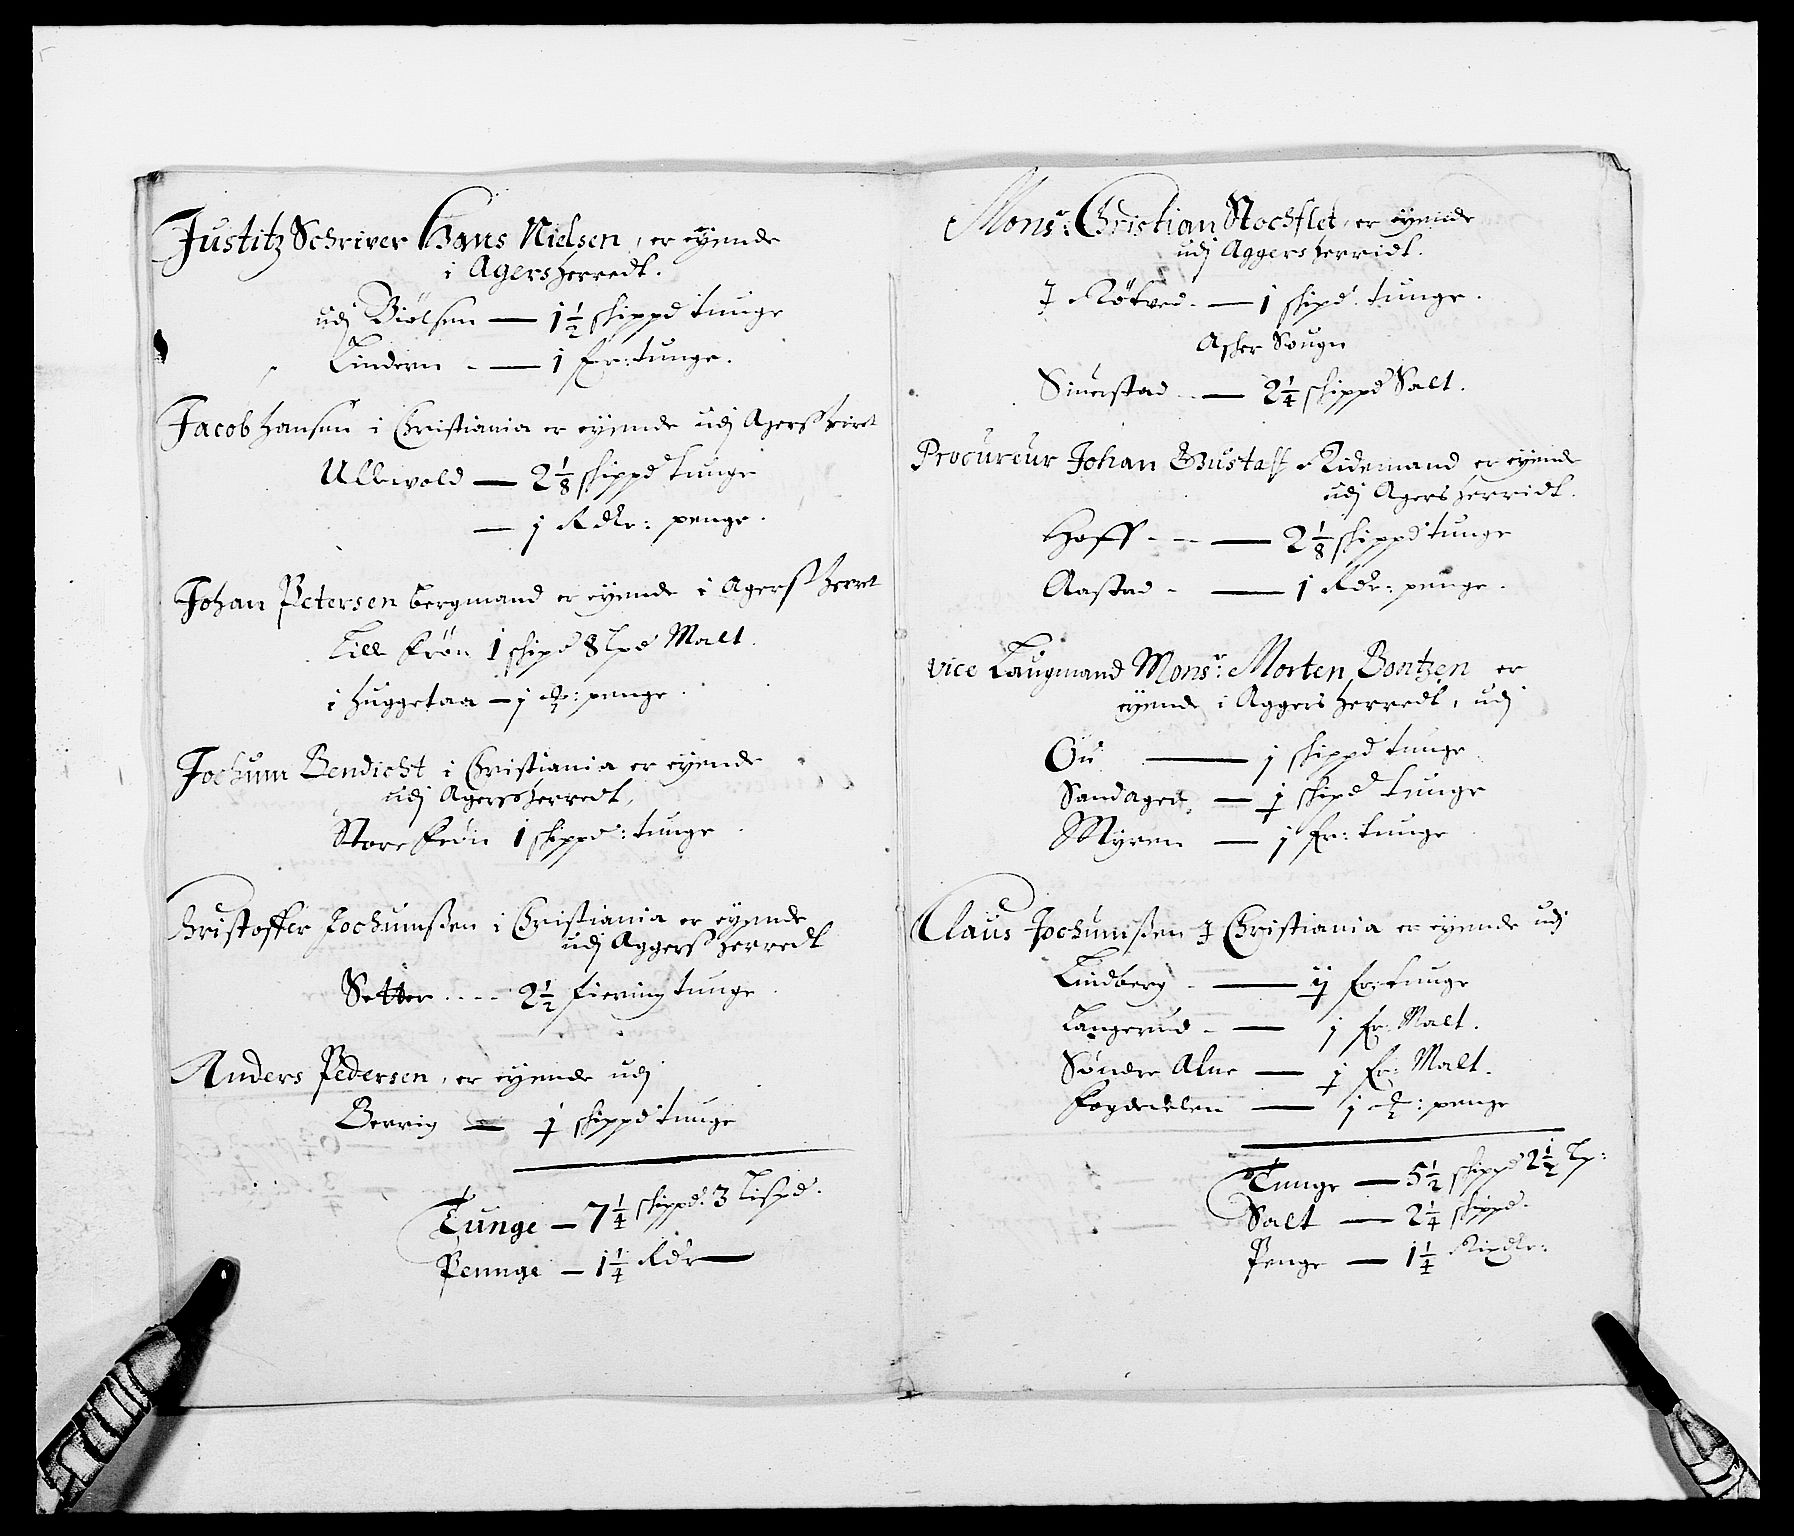 Justitz Schriver Hans Nielsen, er eyende
i Agersherredt.
udj Biølsen — 1½ skippd tunge
Lindern - — 1 fr: tunge.
Jacob Hansen i Christiania er eyende udj Agerss
Ullevold — 2⅛ skippd tunge
— 1 Rdlr: penge.
Johan Petersen bergmand er eyende i Agerss herret
Lille Frøn 1 skipd 8 lpd Malt.
i Huggetaa — 1 penge.
Jochum Bendicht i Christiania er eyende
udj Agersherredt,
Store Frøn 1 skippd: tunge
Christoffer Jochumssen i Christiania er eyende
udj Aggerss herredt
Setter .... 2½ fiering tunge
Anders Pedersen, er eyende udj
Berrig — 1 skippd tunge
Tunge — 7¼ skippd: 3 Lispd.
Pennge — 1¼ Rdr
Monsr: Christian Stochflet, er eyende
udj Aggers herridt.
I Røtved. — 1 skipd. tunge.
Asker Sougn
Siuerstad .. — 2¼ skippd Salt.
Procureur Johan Gustaff Ridemand er eyende
udj Agers herridt.
Hoff - - — 2⅛ skippd tunge
Aastad - — 1 Rdr: penge.
vice Laugmand Monsr: Morten Bontzen er
eyende i Aggers herredt, udj
Ou — 1 skippd tunge
Sandaged, — 1 skipd tunge
Myren — 1 fr: tunge
Claus Jochumssen I Christiania er eyende udj
Lindberg - — fr: tunge
Langerud - — 1 fr: Malt.
Søndre Alne — 1 fr: Malt.
Fogdedelen — 1 : penge
Tunge — 5½ skippd 2½ Lp:
Salt — 2¼ skippd.
Penge — 1¼ Rixdlr: